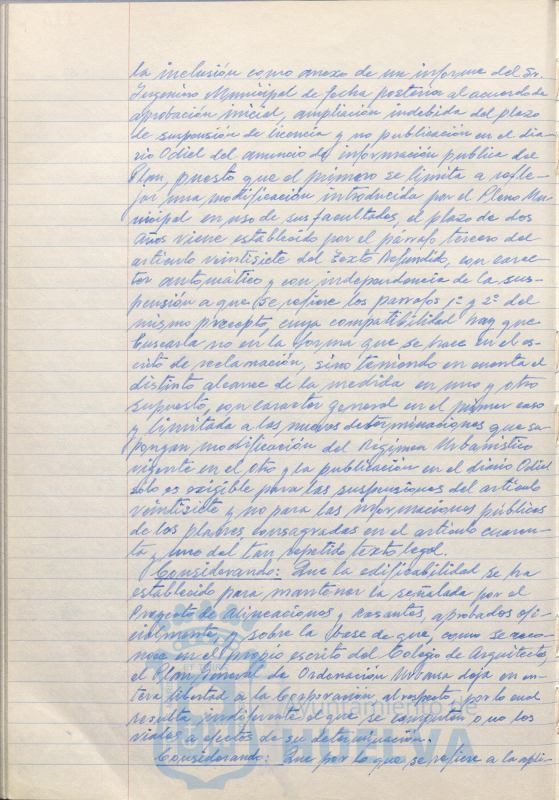 la inclusión como anexo de un informe del Sr.
Ingeniero Municipal de fecha posterior al acuerdo de
aprobación inicial, ampliación indebida del plazo
de suspensión de licencia y no publicación en el dia-
rio Odiel del anuncio de información publica del
Plan, puesto que el primero se limita a refle-
jar una modificación introducida por el Pleno Mu-
nicipal en uso de sus facultades, el plazo de dos
años viene establecido por el párrafo tercero del
artículo veintisiete del Texto Refundido, con carac-
ter automático y con independencia de la sus-
pensión a que se refiere los parrafos 1º y 2º del
mismo precepto, cuya compatibilidad hay que
buscarla no en la forma que se hace en el es-
crito de reclamación, sino teniendo en cuenta el
distinto alcance de la medida en uno y otro
supuesto, con caracter general en el primer caso
y limitada a las nuevas determinaciones que su-
pongan modificación del Régimen Urbanístico
vigente en el otro y la publicación en el diario Odiel
sólo es exigible para las suspensiones del artículo
veintisiete y no para las informaciones públicas
de los planes consagradas en el artículo cuaren-
ta y uno del tan repetido texto legal.
Considerando: Que la edificabilidad se ha
establecido para mantener la señalada por el
Proyecto de Alineaciones y Rasantes, aprobados ofi-
cialmente, y sobre la base de que, como se reco-
noce en el propio escrito del Colegio de Arquitectos,
el Plan General de Ordenación Urbana deja en en-
tera libertad a la Corporación al respecto, por lo cual
resulta indiferente el que se computen o no los
viales a efectos de su determinación.
Considerando: Que por lo que se refiere a la apli-
Ayuntamiento de
HUELVA